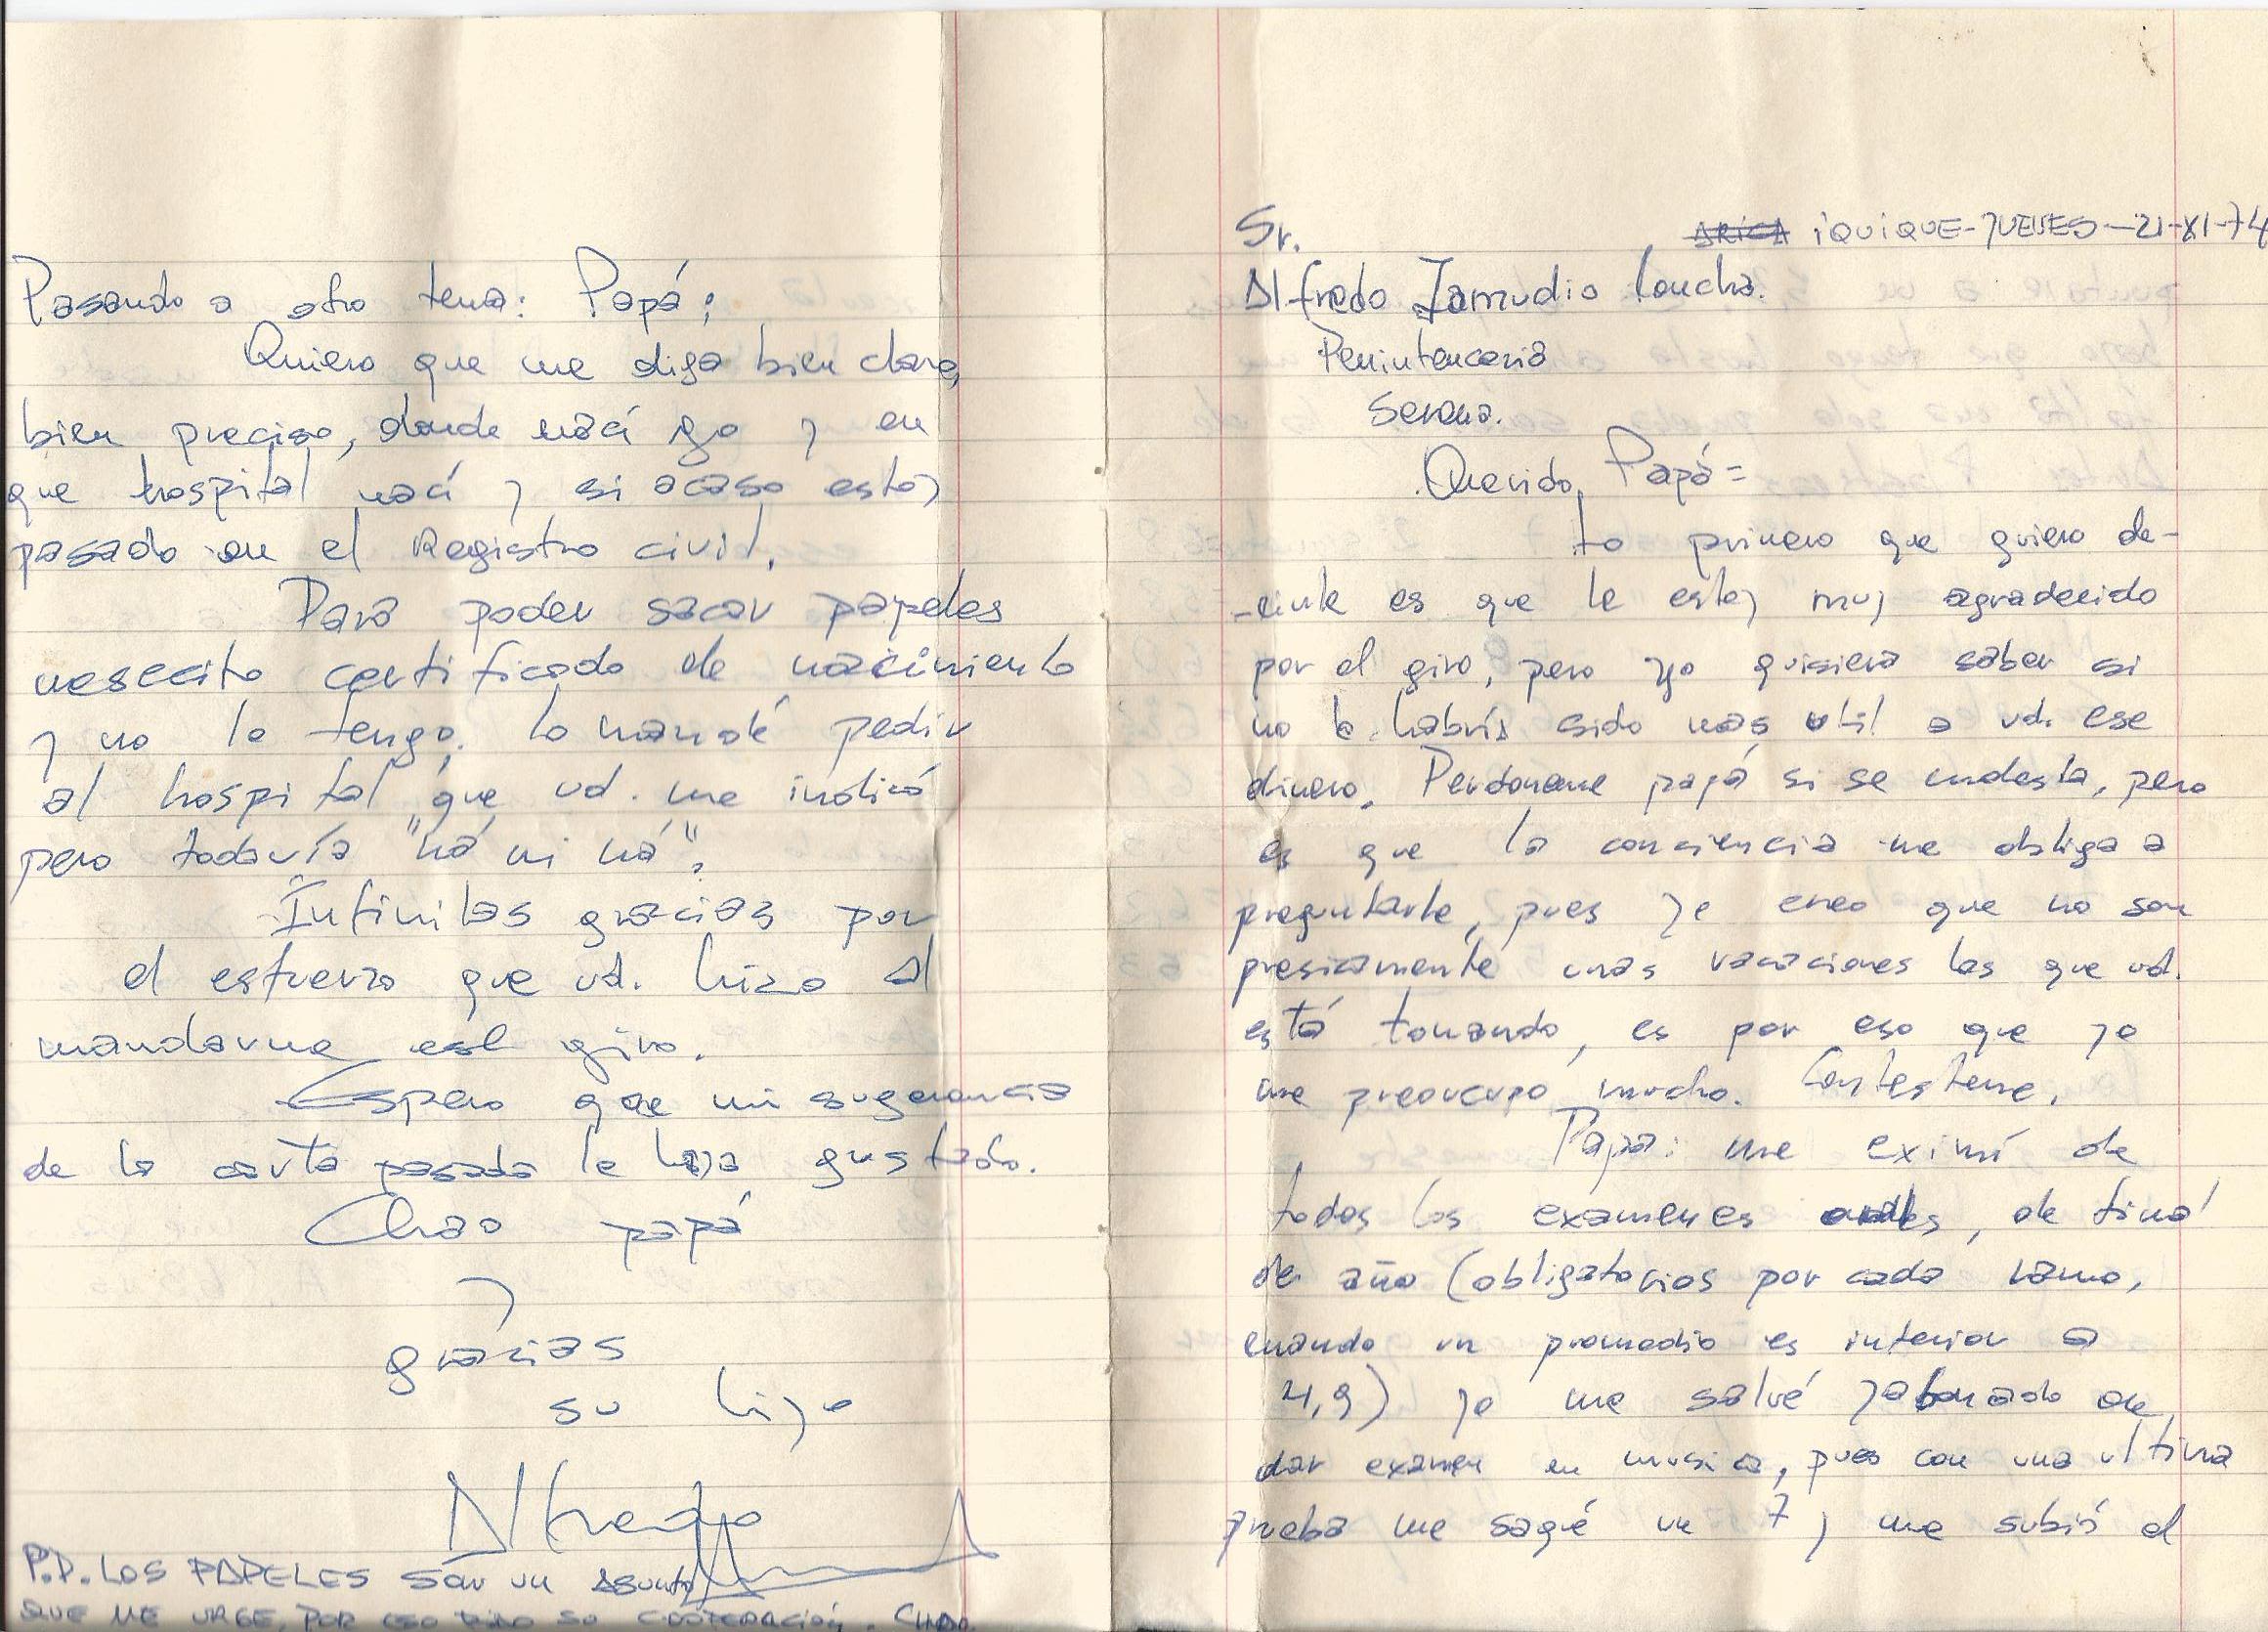 Sr.
ARICA IQUIQUE-JUEVES-21-XI-74
Alfredo Zamudio Concha.
Penintenceria
Serena.
Querido Papá=
Lo primero que quiero de-
-cirle es que le estoy muy agradecido
por el giro, pero yo quisiera saber si
no le habría sido mas util a vd. ese
dinero. Perdoneme papá si se molesta, pero
es que la conciencia me obliga a
preguntarle, pues yo creo que no son
presisamente unas vacaciones las que vd.
está tomando, es por eso que yo
me preocupo mucho. Contesteme.
Papá: me eximí de
todos los examenes orales, de final
de año (obligatorios por cada ramo,
cuando un promedio es inferior a
4,9) yo me salvé jabonado de
dar examen en musica, pues con una ultima
prueba me saqué un 7 y me subió el
Pasando a otro tema: Papá;
Quiero que me diga bien claro,
bien preciso, donde nací yo y en
que hospital nací y si acaso estoy
pasado en el Registro civil.
Para poder sacar papeles
nesecito certificado de nacimiento
y no lo tengo, lo mandé pedir
al hospital que vd. me indicó
pero todavía "ná ni ná".
Infinitas gracias por
el esfuerzo que vd. hizo al
mandarme ese giro.
Espero que mi sugerencia
de la carta pasada le haya gustado.
Chao papá
y
gracias
su hijo
Alfredo
P.D. LOS PAPELES SON UN ASUNTO
QUE ME URGE, POR ESO PIDO SU COOPERACIÓN. CHAO.